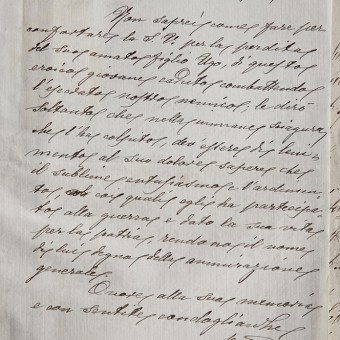 Non saprei come fare per
confortare la S.V. per la perdita
del suo amato figlio Ugo, di questo
eroico giovane caduto combattendo
l'esecrato nostro nemico; le dirò
soltanto che nella immane sciagura
che l'ha colpito, dev'essere di leni-
mento al suo dolore sapere che
il sublime entusiasmo e l'ardimen-
to, con cui quale egli ha partecipa-
to alla guerra e dato la sua vita
per la patria, rendono il nome
di lui degno della ammirazione
generale.
Onore alla sua memoria
e con sentite condoglianze